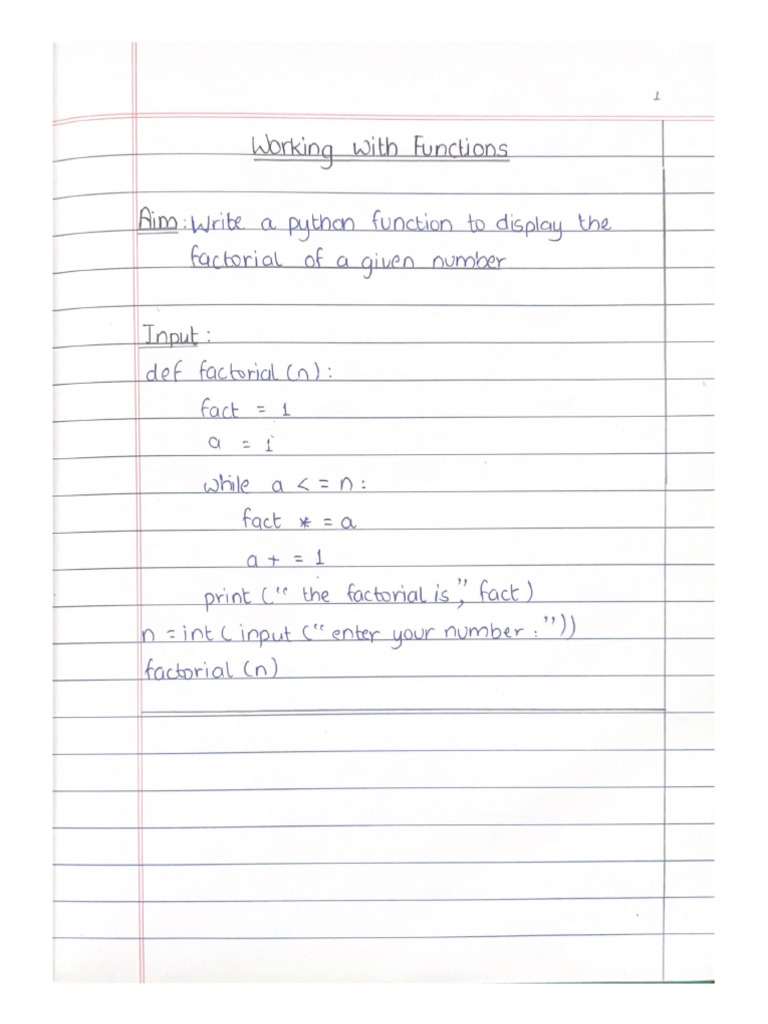 1
Working with Functions
Aim: Write a python function to display the
factorial of a given number
Input:
def factorial (n):
fact = 1
a = 1
while a < = n:
fact * = a
a + = 1
print (“ the factorial is”, fact)
n = int ( input (“enter your number : ”))
factorial (n)